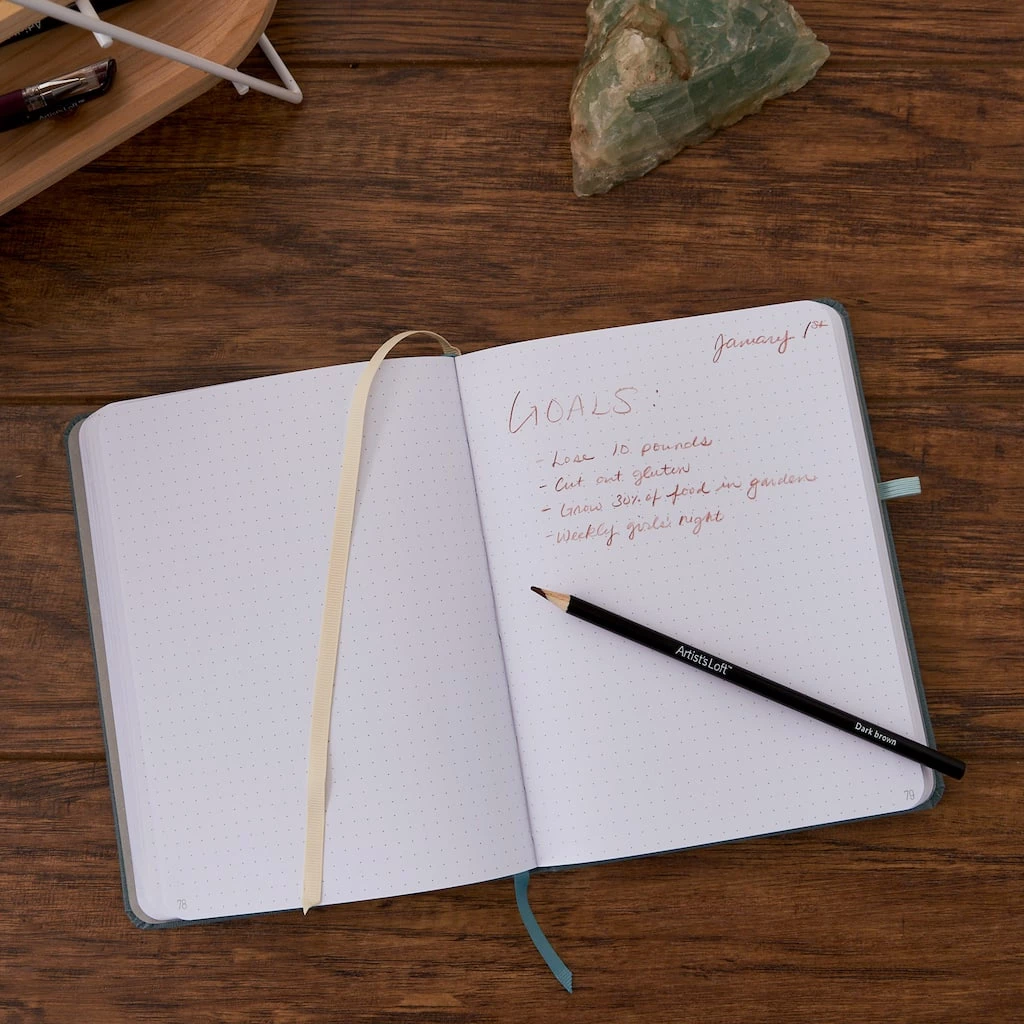 Artist's Loft
January 1st
GOALS:
- Lose 10 pounds
- Cut out gluten
- Grow 30% of food in garden
- Weekly girls' night
Artist's Loft™
Dark brown
78
79